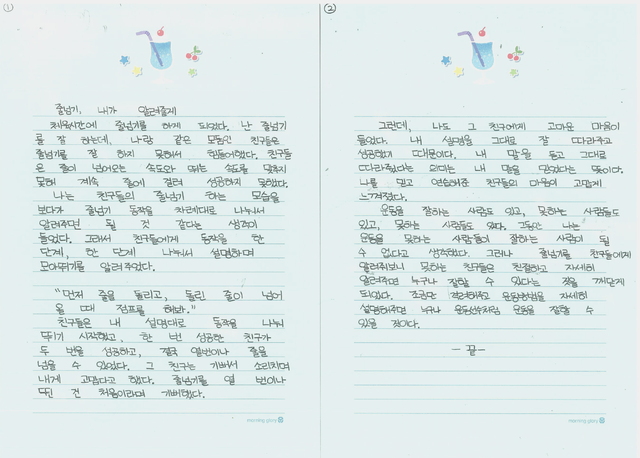 ①
줄넘기, 내가 알려줄게
체육시간에 줄넘기를 하게 되었다. 난 줄넘기
를 잘 하는데, 나랑 같은 모둠인 친구들은
줄넘기를 잘 하지 못해서 힘들어했다. 친구들
은 줄이 넘어오는 속도와 뛰는 속도를 맞추지
못해 계속 줄에 걸려 성공하지 못했다.
나는 친구들의 줄넘기 하는 모습을
보다가 줄넘기 동작을 차례대로 나눠서
알려주면 될 것 같다는 생각이
들었다. 그래서 친구들에게 동작을 한
단계, 한 단계 나눠서 설명하며
모아뛰기를 알려주었다.
"먼저 줄을 돌리고, 돌린 줄이 넘어
올 때 점프를 해봐."
친구들은 내 설명대로 동작을 나눠
뛰기 시작했고, 한 번 성공한 친구가
두 번을 성공하고, 결국 열번이나 줄을
넘을 수 있었다. 그 친구는 기뻐서 소리치며
내게 고맙다고 했다. 줄넘기를 열 번이나
뛴 건 처음이라며 기뻐했다.
morning glory
②
그런데, 나도 그 친구에게 고마운 마음이
들었다. 내 설명을 그대로 잘 따라주고
성공했기 때문이다. 내 말을 듣고 그대로
따라주었다는 의미는 내 말을 믿었다는 뜻이다.
나를 믿고 연습해준 친구들의 마음이 고맙게
느껴졌다.
운동을 잘하는 사람도 있고, 못하는 사람들도
있고, 못하는 사람도 있다. 그동안 나는
운동을 못하는 사람들이 잘하는 사람이 될
수 없다고 생각했다. 그러나 줄넘기를 친구들에게
알려줘보니 못하는 친구들은 친절하고 자세히
알려주면 누구나 잘할 수 있다는 것을 깨닫게
되었다. 조금만 격려해주고 운동방법을 자세히
설명해주면 누구나 운동선수처럼 운동을 잘할 수
있을 것이다.
- 끝 -
morning glory